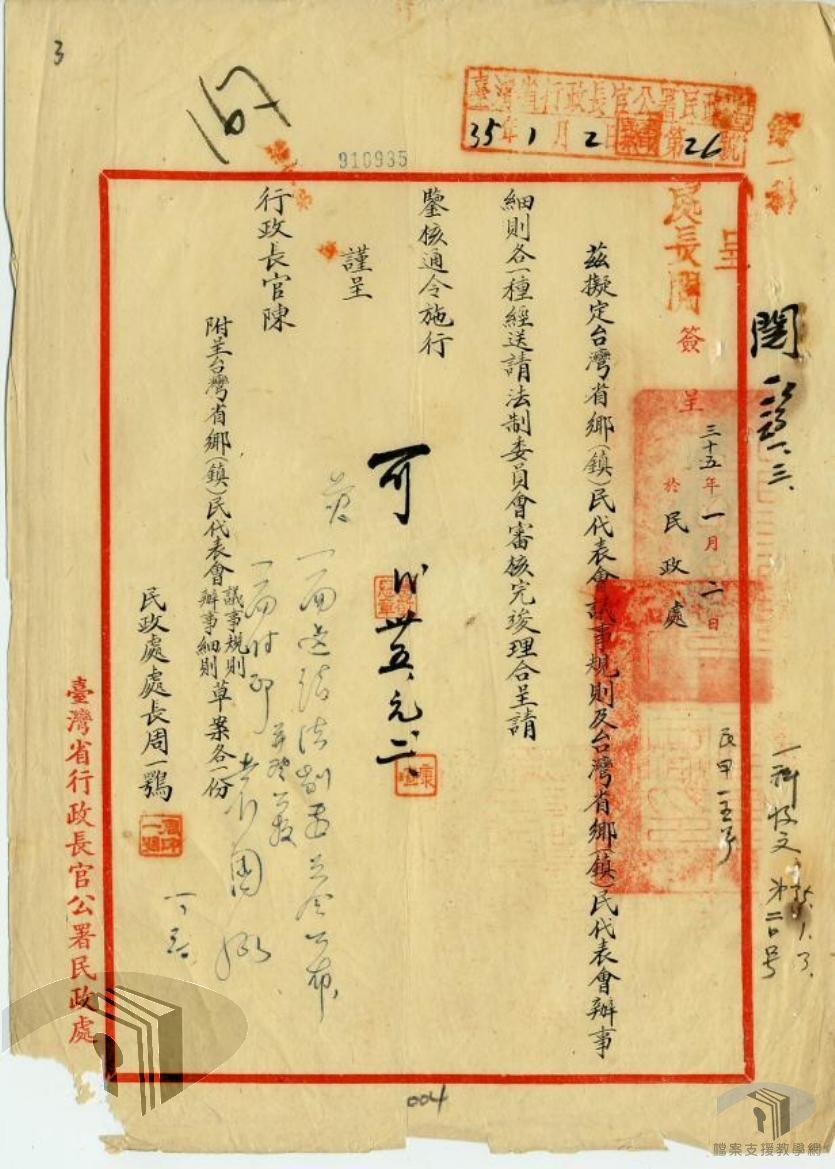 3
910935
臺灣省行政長官公署民政處
35年1月2日 第26號
民長閱
呈
閱
一科收文 35.1.3.
第二〇號
簽呈
三十五年一月二日
於民政處
茲擬定台灣省鄉(鎮)民代表會議事規則及台灣省鄉(鎮)民代表會辦事
細則各一種經送請法制委員會審核完竣理合呈請
鑒核通令施行
謹呈
行政長官陳
附呈台灣省鄉(鎮)民代表會議事規則辦事細則草案各一份
民政處處長周一鶚
可
卅五、元、二、
一面送請法制委員會公布
一面付印
並登公報
臺灣省行政長官公署民政處
004
檔案支援教學網